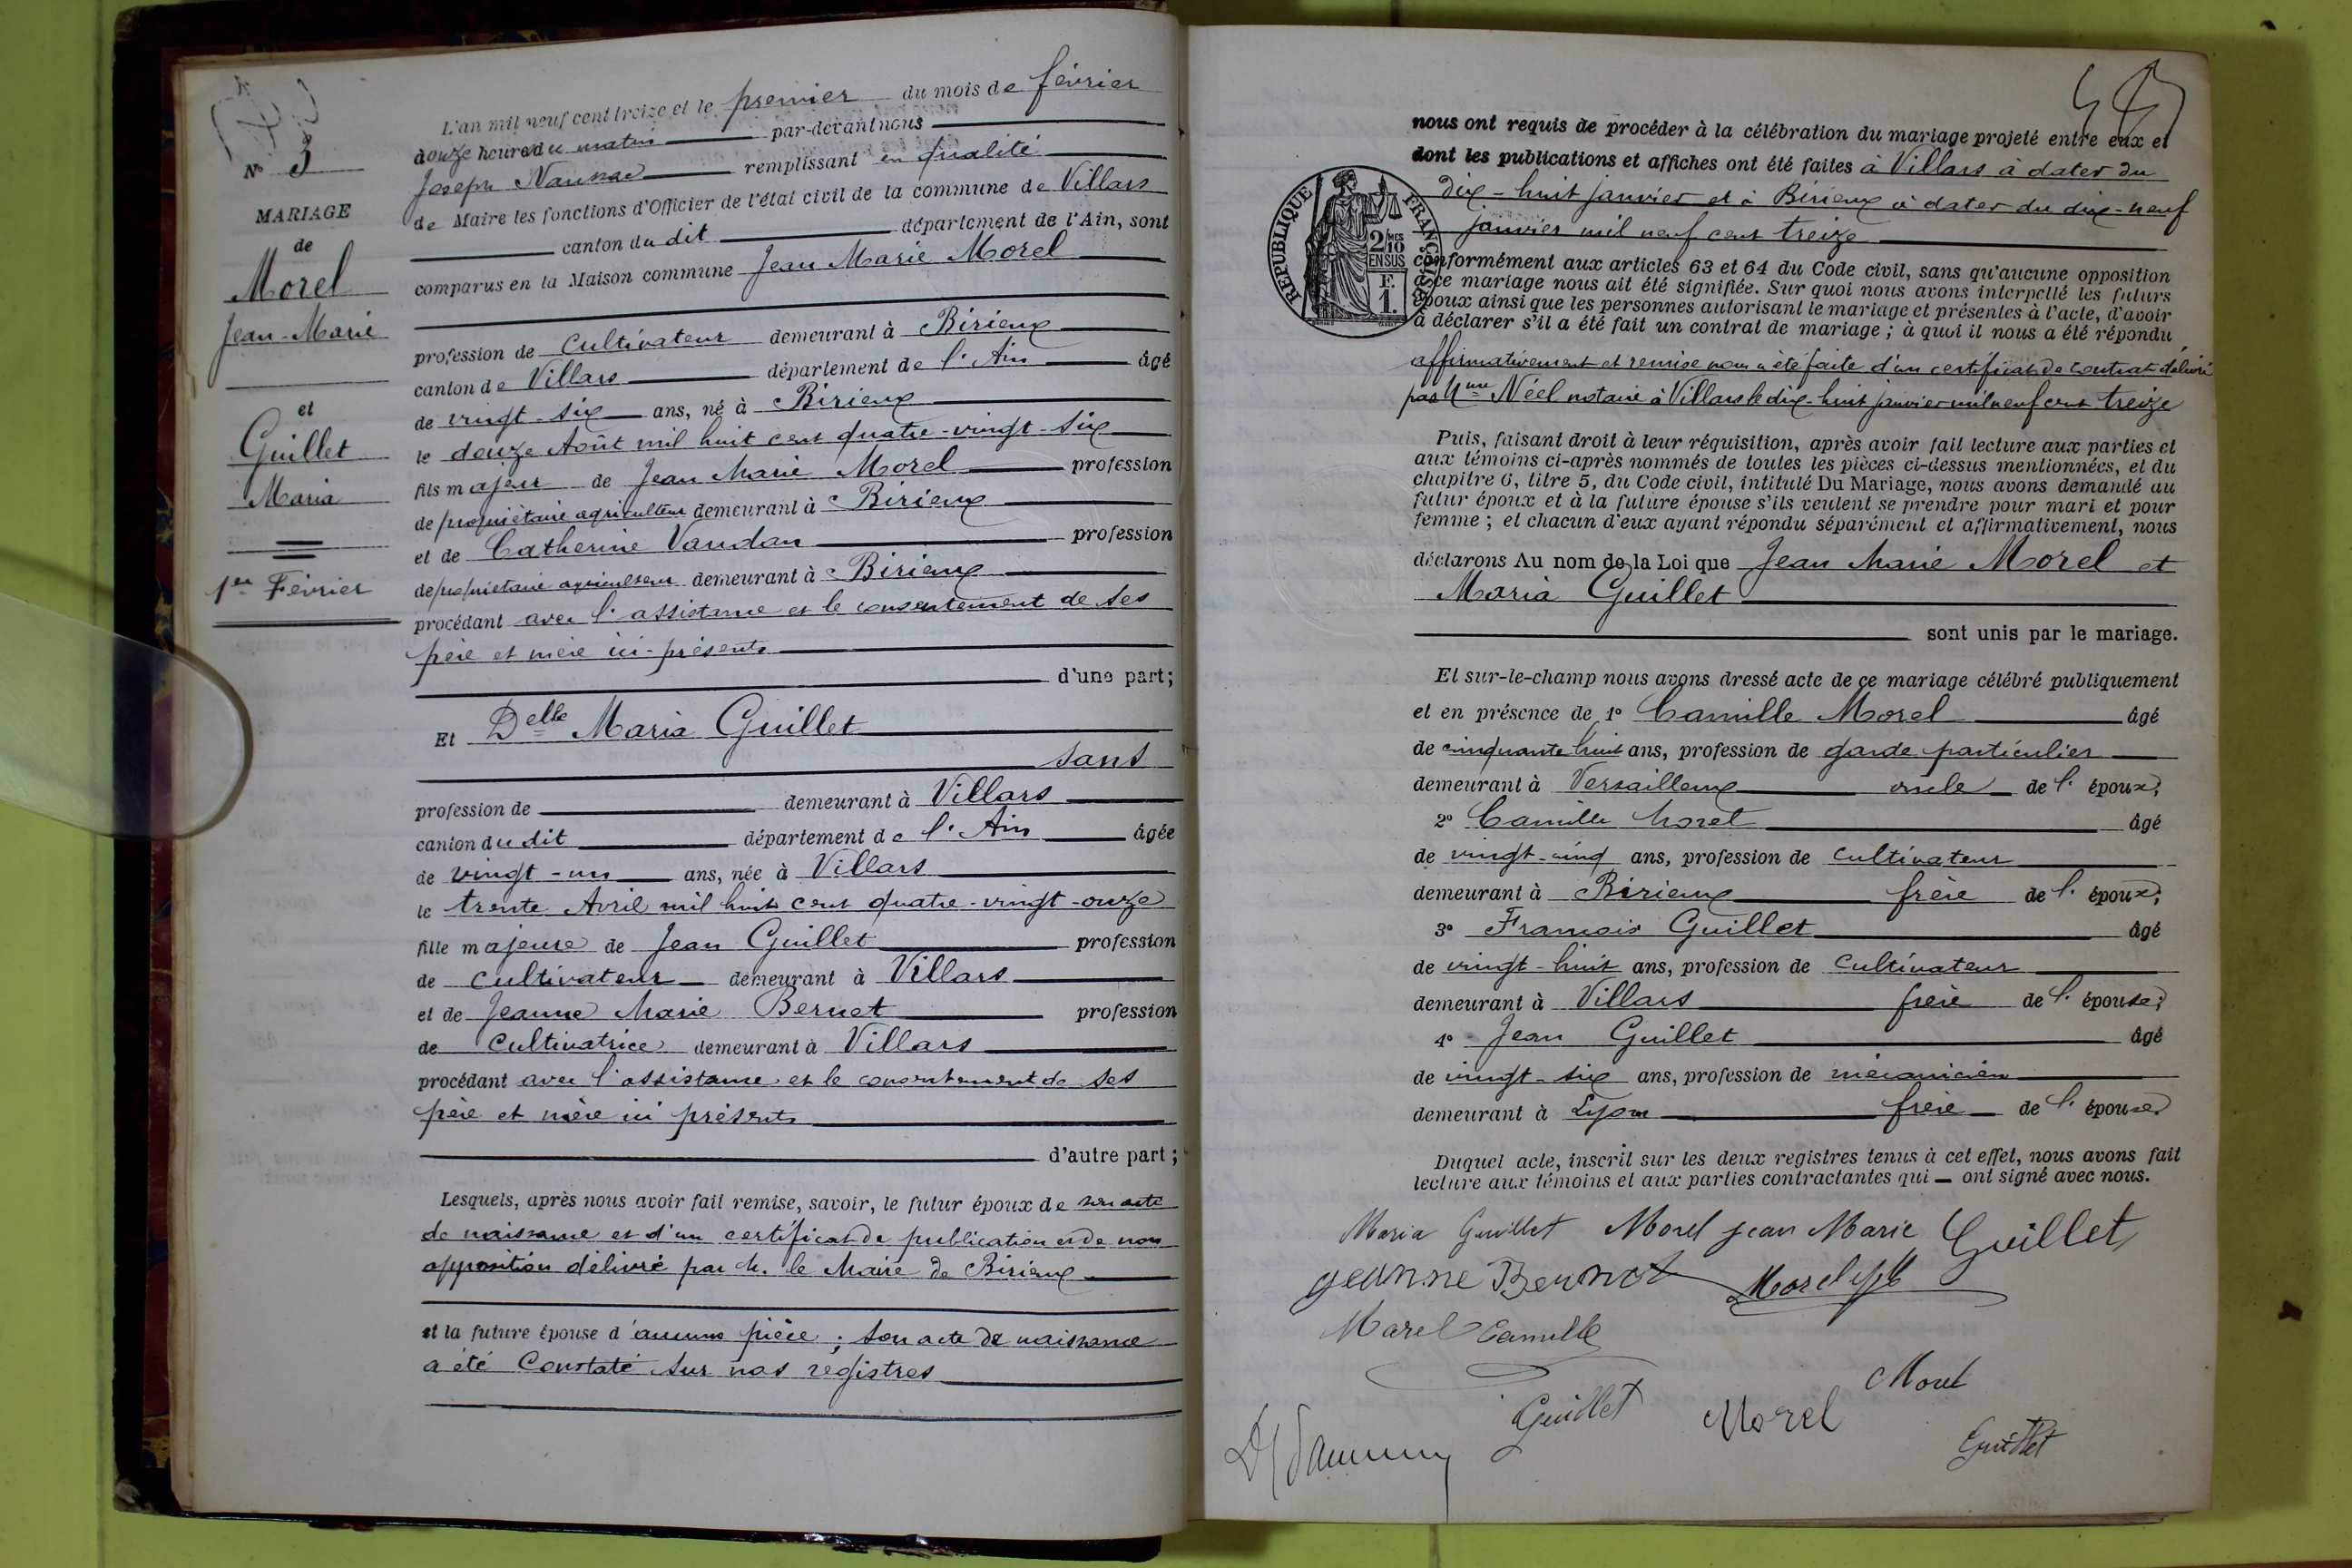 N° 3
MARIAGE
de
Morel
Jean-Marie
et
Guillet
Maria
1er Février
L'an mil neuf cent treize et le premier du mois de février
douze heures du matin par-devant nous
Joseph remplissant en qualité
de Maire les fonctions d'Officier de l'état civil de la commune de Villars
canton du dit département de l'Ain, sont
comparus en la Maison commune Jean Marie Morel
profession de cultivateur demeurant à Birieux
canton de Villars département de l'Ain âgé
de vingt-six ans, né à Birieux
le douze Août mil huit cent quatre-vingt-six
fils majeur de Jean Marie Morel profession
de propriétaire agriculteur demeurant à Birieux
et de Catherine Vaudan profession
de propriétaire agriculteur demeurant à Birieux
procédant avec l'assistance et le consentement de ses
père et mère ici-présents
d'une part;
Et Delle Maria Guillet
sans
profession de demeurant à Villars
canton du dit département de l'Ain âgée
de vingt-un ans, née à Villars
le trente Avril mil huit cent quatre-vingt-onze
fille majeure de Jean Guillet profession
de cultivateur demeurant à Villars
et de Jeanne Marie Bernet profession
de cultivatrice demeurant à Villars
procédant avec l'assistance et le consentement de ses
père et mère ici présents
d'autre part;
Lesquels, après nous avoir fait remise, savoir, le futur époux de son acte
de naissance et d'un certificat de publication et de non
opposition délivré par M. le Maire de Birieux
et la future épouse d'aucune pièce; son acte de naissance
a été constaté sur nos registres
nous ont requis de procéder à la célébration du mariage projeté entre eux et
dont les publications et affiches ont été faites à Villars à dater du
dix-huit janvier et à Birieux à dater du dix-neuf
janvier mil neuf cent treize
RÉPUBLIQUE FRANÇAISE
2/10 MES
EN SUS
F.
1.
conformément aux articles 63 et 64 du Code civil, sans qu'aucune opposition
à ce mariage nous ait été signifiée. Sur quoi nous avons interpellé les futurs
époux ainsi que les personnes autorisant le mariage et présentes à l'acte, d'avoir
à déclarer s'il a été fait un contrat de mariage; à quoi il nous a été répondu
affirmativement et remise nous a été faite d'un certificat de contrat délivré
par Néel notaire à Villars le dix-huit janvier mil neuf cent treize
Puis, faisant droit à leur réquisition, après avoir fait lecture aux parties et
aux témoins ci-après nommés de toutes les pièces ci-dessus mentionnées, et du
chapitre 6, titre 5, du Code civil, intitulé Du Mariage, nous avons demandé au
futur époux et à la future épouse s'ils veulent se prendre pour mari et pour
femme; et chacun d'eux ayant répondu séparément et affirmativement, nous
déclarons Au nom de la Loi que Jean Marie Morel et
Maria Guillet
sont unis par le mariage.
Et sur-le-champ nous avons dressé acte de ce mariage célébré publiquement
et en présence de 1° Camille Morel âgé
de cinquante huit ans, profession de garde particulier
demeurant à Versailleux oncle de l'époux;
2° Camille Morel âgé
de vingt-cinq ans, profession de cultivateur
demeurant à Birieux frère de l'époux;
3° François Guillet âgé
de vingt-huit ans, profession de cultivateur
demeurant à Villars frère de l'épouse;
4° Jean Guillet âgé
de vingt-six ans, profession de mécanicien
demeurant à Lyon frère de l'épouse.
Duquel acte, inscrit sur les deux registres tenus à cet effet, nous avons fait
lecture aux témoins et aux parties contractantes qui — ont signé avec nous.
Maria Guillet Morel jean Marie Guillet
jeanne Bernot Morel
Morel Camille
Morel
Guillet Morel
Guillet